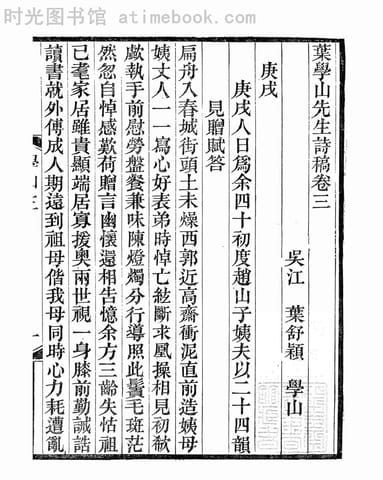 时光图书馆 - atimebook.com
葉學山先生詩稿卷三
吳江 葉舒穎 學山
庚戌
庚戌人日爲余四十初度趙山子姨夫以二十四韻
見贈賦答
扁舟入春城街頭土未燥西郭近高齋衝泥直前造姨母
姨丈人一一寫心好表弟時悼亡絃斷求凰操相見初欷
歔執手前慰勞盤餐兼味陳燈燭分行導照此鬢毛斑茫
然忽自悼感歎荷贈言幽懷還相告憶余方三齡失怙祖
已耄家居雖貴顯端居寡援奧兩世視一身膝前勤誡誥
讀書就外傅成人期遠到祖母偕我母同時心力耗遭亂
一